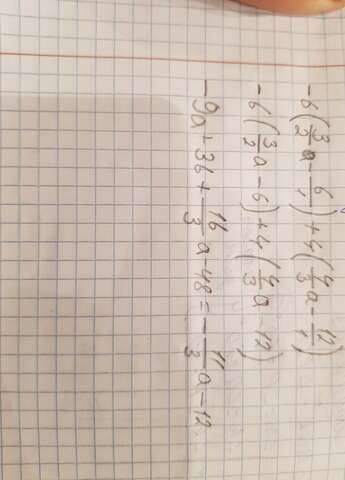 -6(3/2 a - 6/1) + 4(4/3 a - 12/1)
-6(3/2 a - 6) + 4(4/3 a - 12)
-9a + 36 + 16/3 a - 48 = -11/3 a - 12